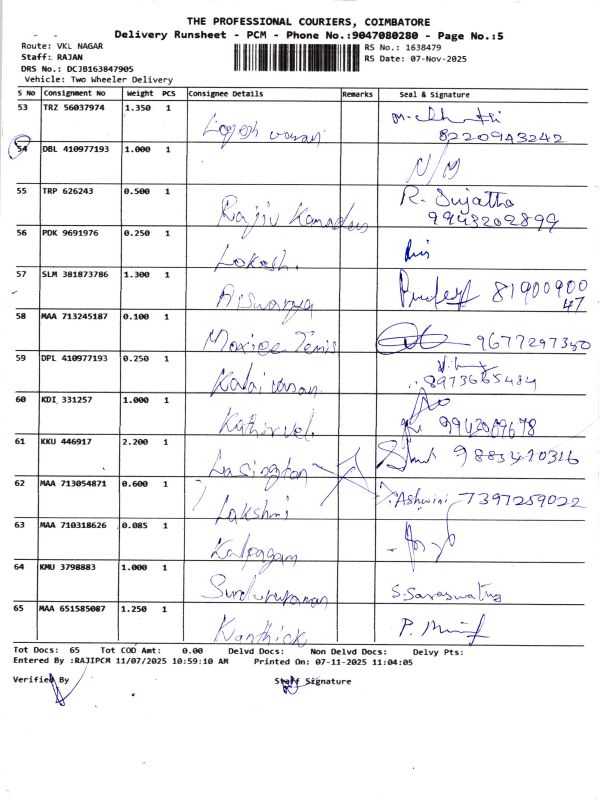 THE PROFESSIONAL COURIERS, COIMBATORE
Delivery Runsheet - PCM - Phone No.:9047080280 - Page No.:5
Route: VKL NAGAR RS No.: 1638479
Staff: RAJAN RS Date: 07-Nov-2025
DRS No.: DCJB163847905
Vehicle: Two Wheeler Delivery
S No Consignment No Weight PCS Consignee Details Remarks Seal & Signature
53 TRZ 56037974 1.350 1
8220943242
54 DBL 410977193 1.000 1 N/M
55 TRP 626243 0.500 1 Rajiv R. Sujatha
9943202899
56 PDK 9691976 0.250 1 Lokesh.
57 SLM 381873786 1.300 1 Aiswarya 81900900
47
58 MAA 713245187 0.100 1 9677297350
59 DPL 410977193 0.250 1 Kalaivanan
8973665484
60 KDI 331257 1.000 1 Kathirvel
61 KKU 446917 2.200 1
62 MAA 713054871 0.600 1 Lakshmi Ashwini 7397259022
63 MAA 710318626 0.085 1 Kalpagam
64 KMU 3798883 1.000 1 S. Saraswathy
65 MAA 651585087 1.250 1 Karthick
Tot Docs: 65 Tot COD Amt: 0.00 Delvd Docs: Non Delvd Docs: Delvy Pts:
Entered By :RAJIPCM 11/07/2025 10:59:10 AM Printed On: 07-11-2025 11:04:05
Verified By Staff Signature